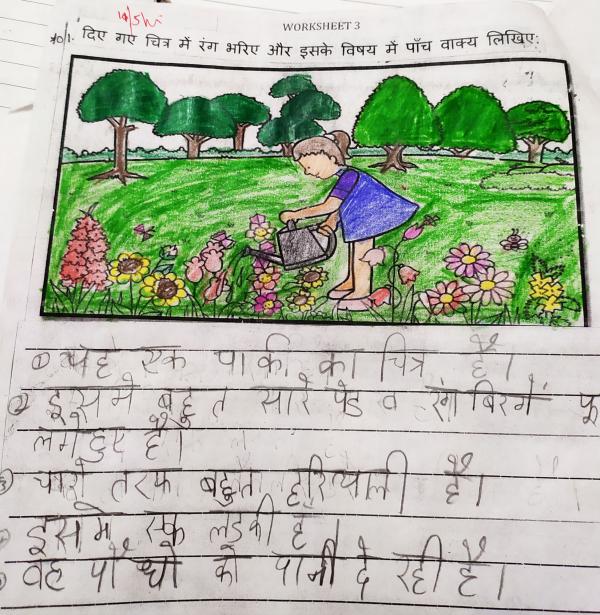 WORKSHEET 3
1. दिए गए चित्र में रंग भरिए और इसके विषय में पाँच वाक्य लिखिए:
① यह एक पाकी का चित्र है।
② इसमे बहुत सारे पेड व रंग बिरगें फू
लगे हुए है।
चारो तरफ बहुत हरियाली है।
इसमे एक लडकी है।
वह पौधो को पानी दे रही है।